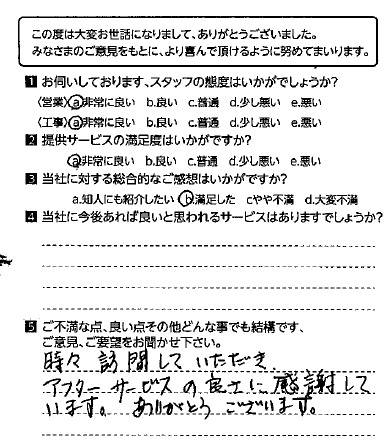 この度は大変お世話になりまして、ありがとうございました。
みなさまのご意見をもとに、より喜んで頂けるように努めてまいります。
1 お伺いしております、スタッフの態度はいかがでしょうか?
〈営業〉a.非常に良い b.良い c.普通 d.少し悪い e.悪い
〈工事〉a.非常に良い b.良い c.普通 d.少し悪い e.悪い
2 提供サービスの満足度はいかがですか?
a.非常に良い b.良い c.普通 d.少し悪い e.悪い
3 当社に対する総合的なご感想はいかがですか?
a.知人にも紹介したい b.満足した cやや不満 d.大変不満
4 当社に今後あれば良いと思われるサービスはありますでしょうか?
5 ご不満な点、良い点その他どんな事でも結構です、
ご意見、ご要望をお聞かせ下さい。
時々訪問していただき
アフターサービスの良さに感謝して
います。ありがとうございます。